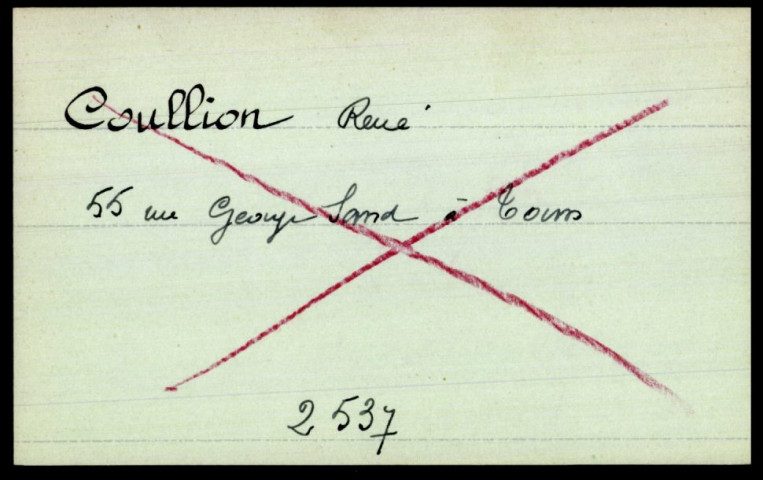 Coullion René
55 rue George Sand à Tours
2537